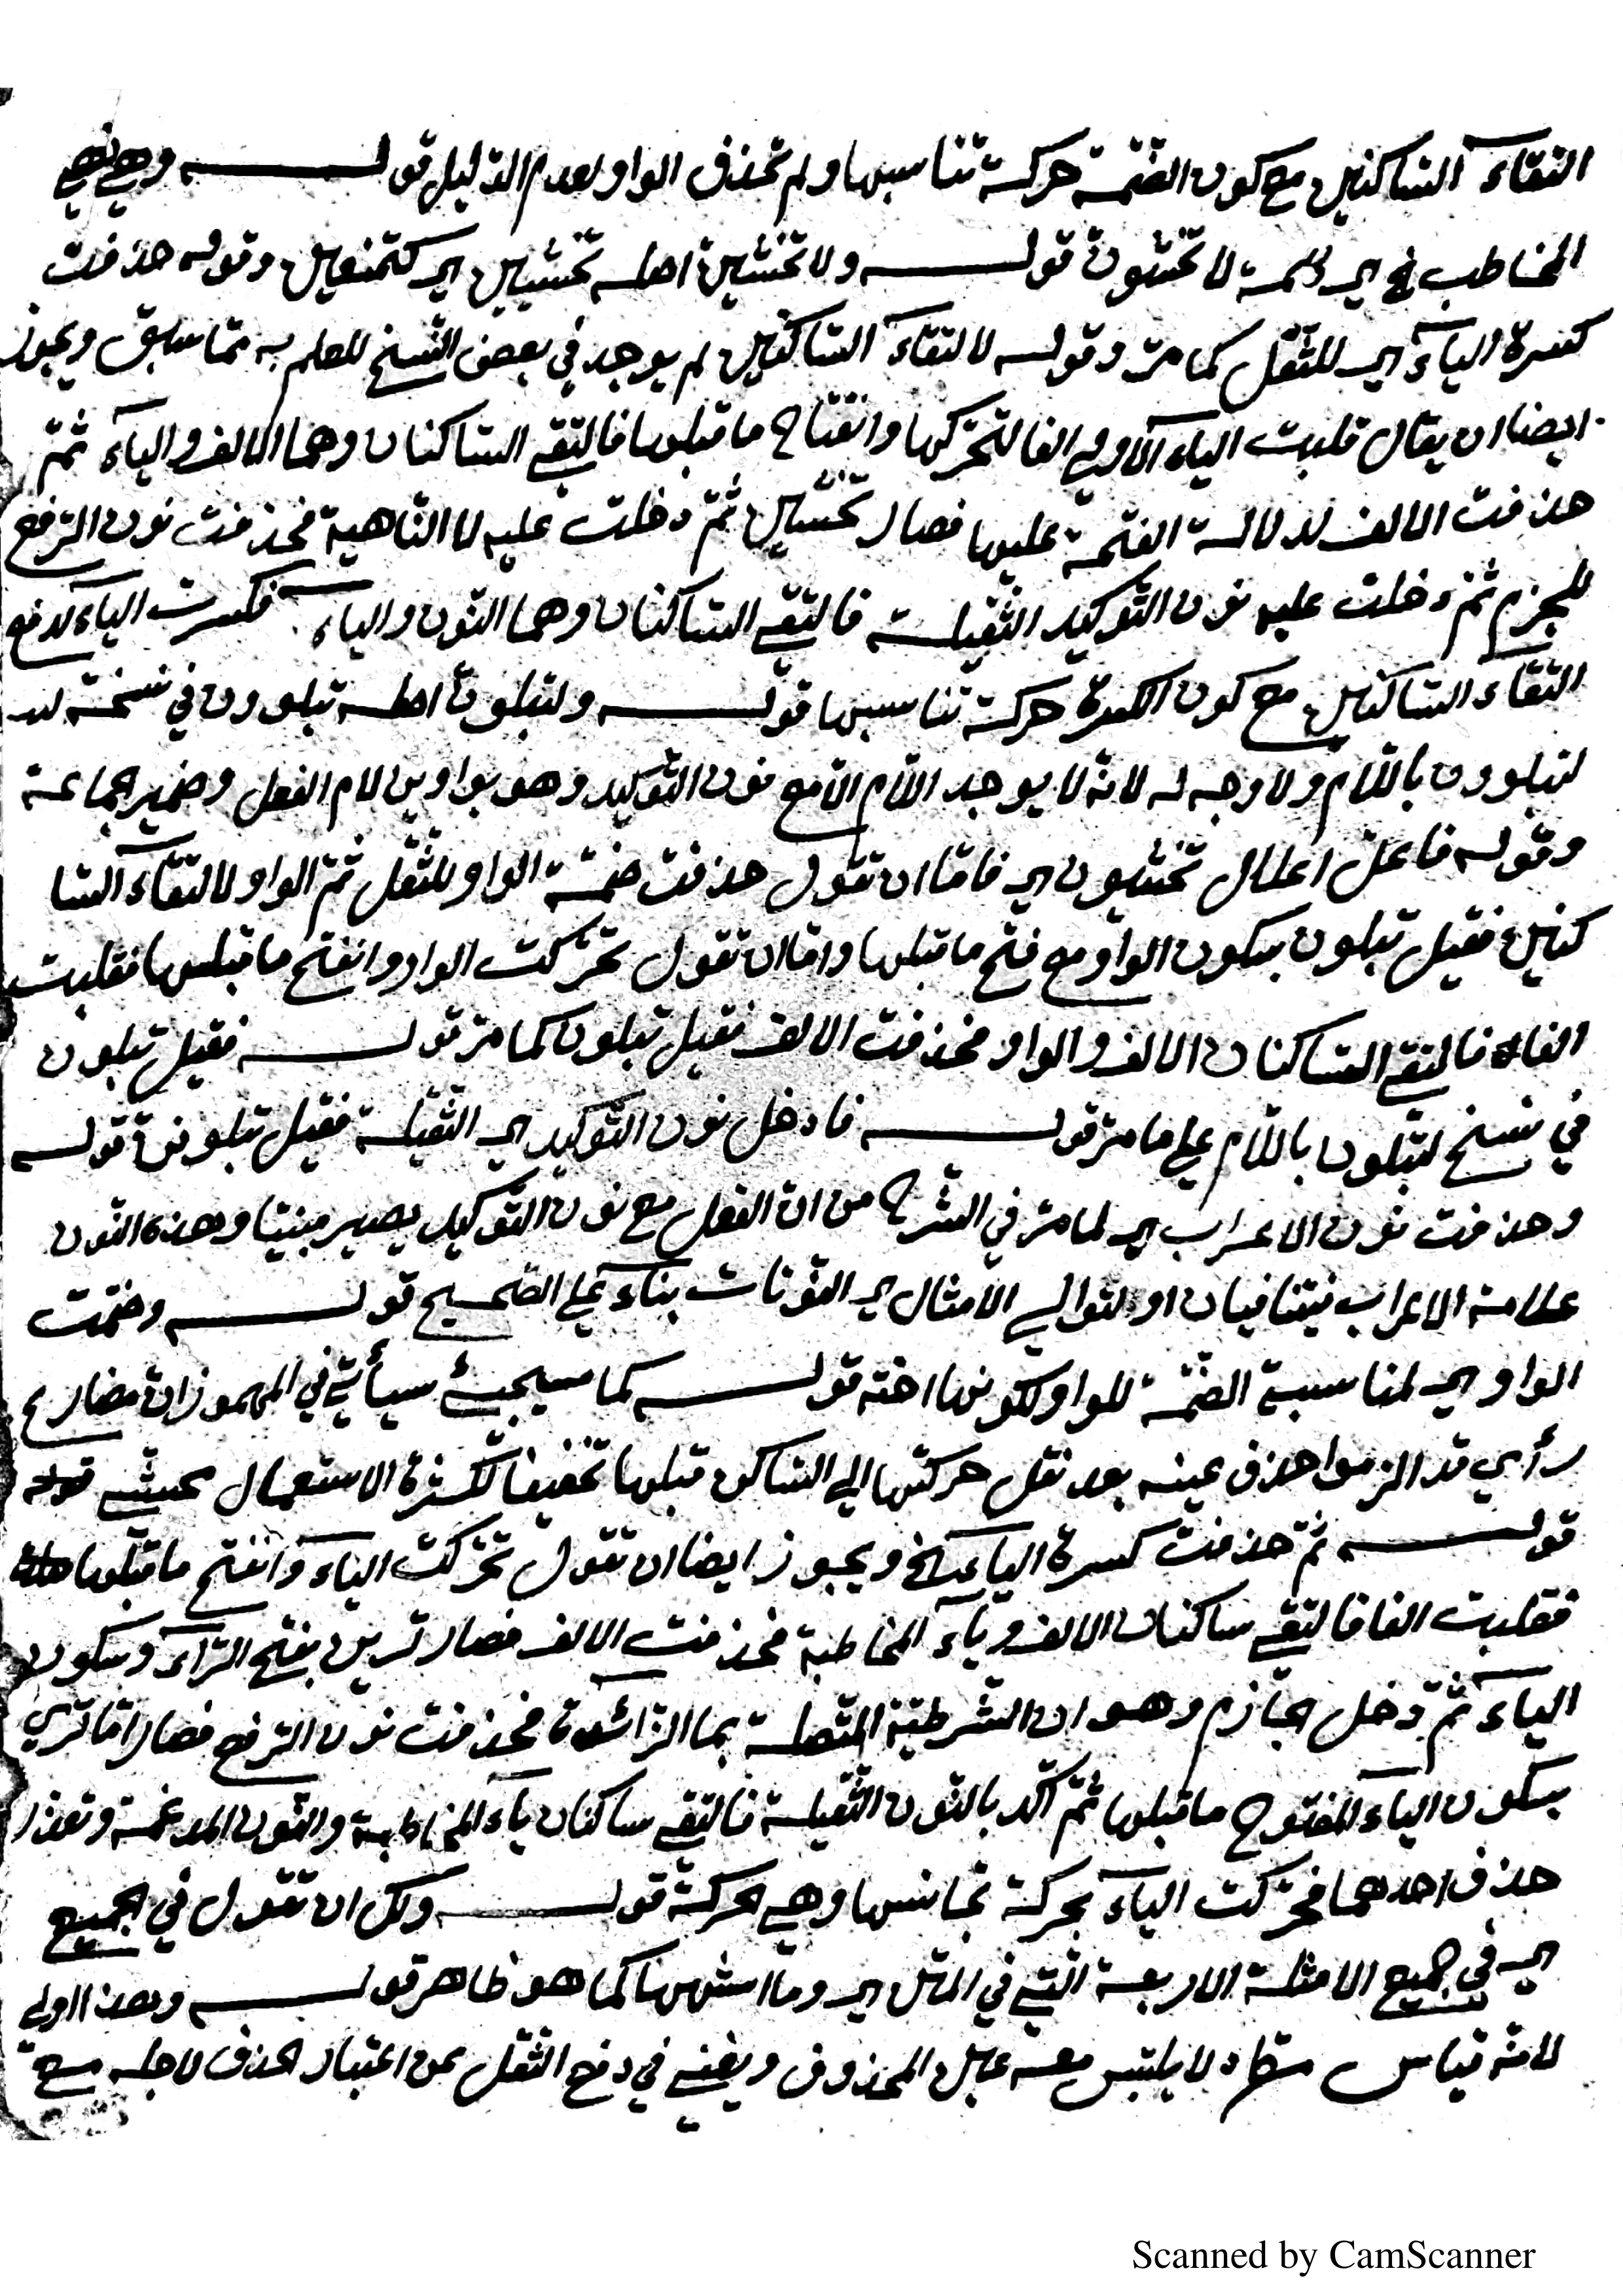 التقاء الساكنين مع كون الضمّة حركة تناسبها ولم تحذف الواو لعدم الدّليل قوله وهي نهي
المخاطب لا تخشونّ قوله ولا تخشينّ اصله تخشيين اي كتمنعين وقوله حذفت
كسرة الياء اي للثّقل كما مرّ وقوله لالتقاء الساكنين لم يوجد في بعض النّسخ للعلم به ممّا سبق ويجوز
ايضا ان يقال قلبت الياء الاولي الفا لتحرّكها وانفتاح ما قبلها فالتقي الساكنان وهما الالف والياء ثمّ
حذفت الالف لدلالة الفتحة عليها فصار تخشين ثمّ دخلت عليه لا النّاهية فحذفت نون الرّفع
للجزم ثمّ دخلت عليه نون التّوكيد الثّقيلة فالتقي الساكنان وهما النّون والياء فكسرت الياء لدفع
التقاء الساكنين مع كون الكسرة حركة تناسبها قوله ولتبلونّ اصله تبلوون في نسخة
لتبلوون باللّام ولا وجه له لانّه لا يوجد اللّام الّا مع نون التّوكيد وهو بواوين لام الفعل وضمير الجماعة
وقوله فاعلّ اعلال تخشيون اي فامّا ان تقول حذفت ضمّة الواو للثّقل ثمّ الواو لالتقاء السّا
كنين فقيل تبلون بسكون الواو مع فتح ما قبلها وامّا ان تقول تحرّكت الواو وانفتح ما قبلها فقلبت
الفا فالتقي الساكنان الالف والواو فحذفت الالف فقيل تبلون كما مرّ قوله فقيل تبلون
في نسخ لتبلون باللّام علي ما مرّ قوله فادخل نون التّوكيد اي الثّقيلة فقيل تبلوننّ قوله
وحذفت نون الاعراب اي لما مرّ في الشّرح من انّ الفعل مع نون التّوكيد يصير مبنيّا وهذه النّون
علامة الاعراب فيتنافيان او لتوالي الامثال اي النّونات بناء علي الصّحيح قوله وضمّت
الواو اي لمناسبة الضّمّة للواو ولكونها اخته قوله كما سيجئ سيأتي في المهموز انّ مضارع
رأي قد التزموا حذف عينه بعد نقل حركتها الي الساكن قبلها تخفيفا لكثرة الاستعمال
قوله ثمّ حذفت كسرة الياء الخ ويجوز ايضا ان تقول تحرّكت الياء وانفتح ما قبلها
فقلبت الفا فالتقي ساكنان الالف وياء المخاطبة فحذفت الالف فصار ترين بفتح الرّاء وسكون
الياء ثمّ دخل الجازم وهو ان الشّرطيّة المتّصلة بما الزّائدة فحذفت نون الرّفع فصار امّا تري
بسكون الياء المفتوح ما قبلها ثمّ اكّد بالنّون الثّقيلة فالتقي ساكنان ياء المخاطبة والنّون المدغمة وتعذّر
حذف احدهما فحرّكت الياء بحركة تجانسها وهي الحركة قوله ولك ان تقول في الجميع
اي في جميع الامثلة الاربعة الّتي في المتن اي وما اشبهها كما هو ظاهر قوله وهذا اولي
لانّه قياس مطّرد لا يلتبس معه عامل المحذوف ويغني في دفع الثّقل عن اعتبار الحذف لاجله
Scanned by CamScanner